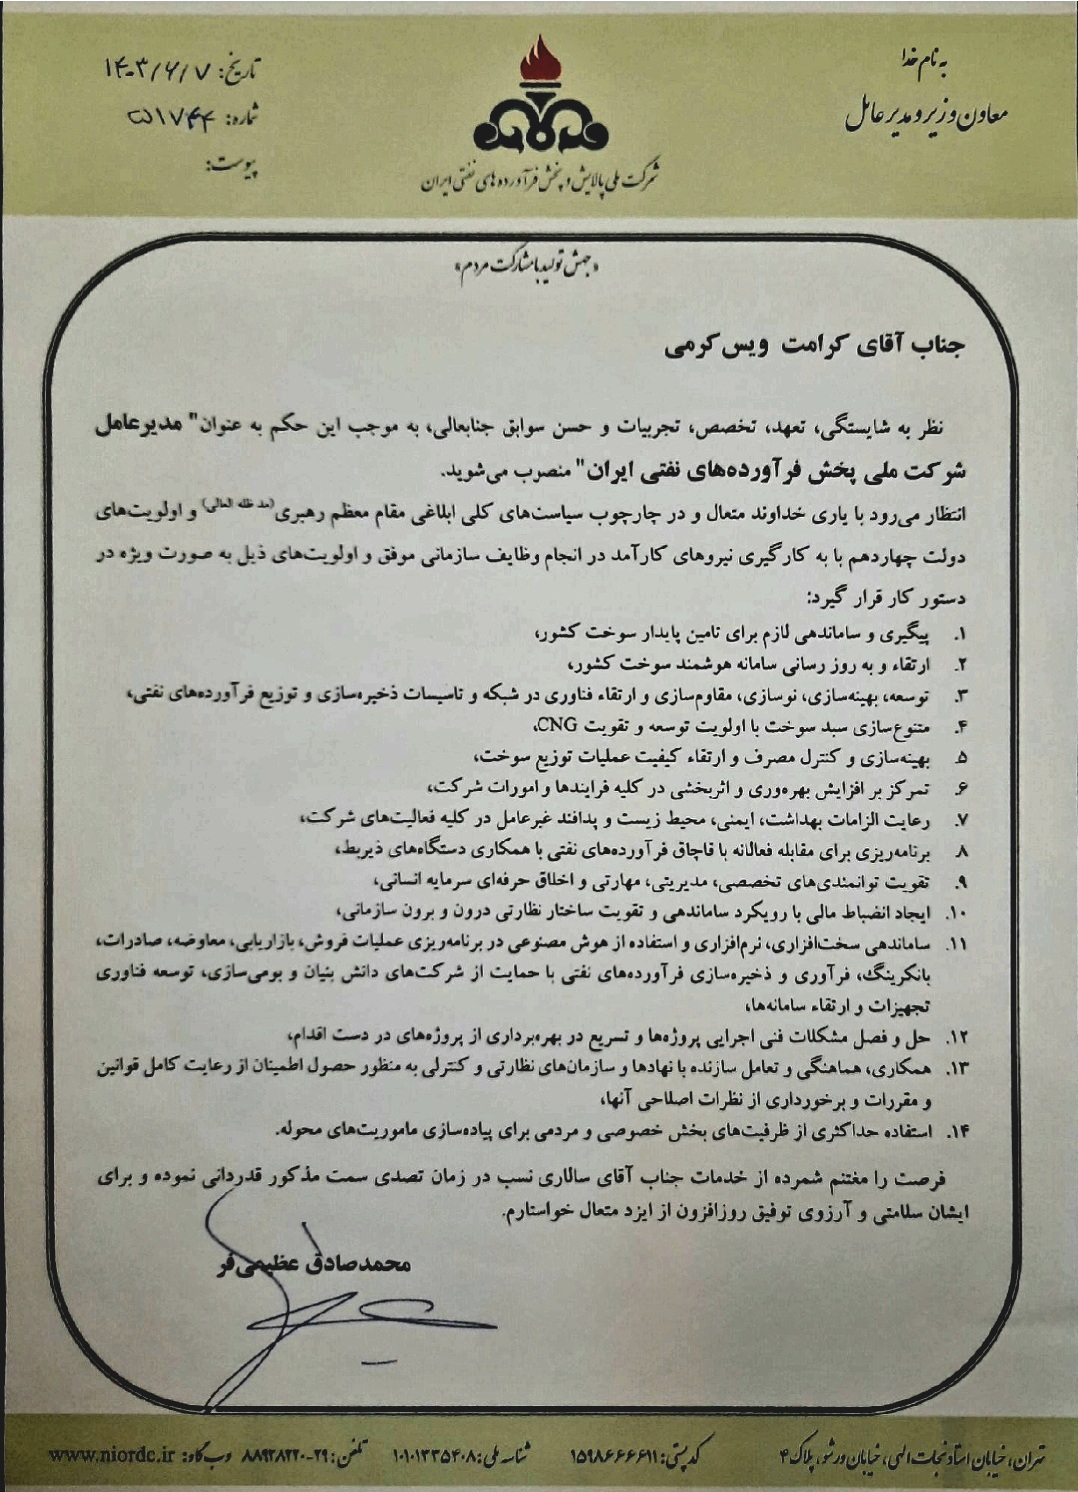 به نام خدا
معاون وزیر و مدیر عامل
تاریخ: ۱۴۰۳/۶/۷
شماره: ۵۱۷۴۴
پیوست:
شرکت ملی پالایش و پخش فرآورده های نفتی ایران
«جهش تولید با مشارکت مردم»
جناب آقای کرامت ویس کرمی
نظر به شایستگی، تعهد، تخصص، تجربیات و حسن سوابق جنابعالی، به موجب این حکم به عنوان" مدیرعامل
شرکت ملی پخش فرآورده‌های نفتی ایران" منصرب می‌شوید.
انتظار می‌رود با یاری خداوند متعال و در چارچوب سیاست‌های کلی ابلاغی مقام معظم رهبری(مد ظله العالی) و اولویت‌های
دولت چهاردهم با به کارگیری نیروهای کارآمد در انجام وظایف سازمانی موفق و اولویت‌های ذیل به صورت ویژه در
دستور کار قرار گیرد:
۱. پیگیری و ساماندهی لازم برای تامین پایدار سوخت کشور،
۲. ارتقاء و به روز رسانی سامانه هوشمند سوخت کشور،
۳. توسعه، بهینه‌سازی، نوسازی، مقاوم‌سازی و ارتقاء فناوری در شبکه و تاسیسات ذخیره‌سازی و توزیع فرآورده‌های نفتی،
۴. متنوع‌سازی سبد سوخت با اولویت توسعه و تقویت CNG،
۵. بهینه‌سازی و کنترل مصرف و ارتقاء کیفیت عملیات توزیع سوخت،
۶. تمرکز بر افزایش بهره‌وری و اثربخشی در کلیه فرایندها و امورات شرکت،
۷. رعایت الزامات بهداشت، ایمنی، محیط زیست و پدافند غیرعامل در کلیه فعالیت‌های شرکت،
۸. برنامه‌ریزی برای مقابله فعالانه با قاچاق فرآورده‌های نفتی با همکاری دستگاه‌های ذیربط،
۹. تقویت توانمندی‌های تخصصی، مدیریتی، مهارتی و اخلاق حرفه‌ای سرمایه انسانی،
۱۰. ایجاد انضباط مالی با رویکرد ساماندهی و تقویت ساختار نظارتی درون و برون سازمانی،
۱۱. ساماندهی سخت‌افزاری، نرم‌افزاری و استفاده از هوش مصنوعی در برنامه‌ریزی عملیات فروش، بازاریابی، معاوضه، صادرات،
بانکرینگ، فرآوری و ذخیره‌سازی فرآورده‌های نفتی با حمایت از شرکت‌های دانش بنیان و بومی‌سازی، توسعه فناوری
تجهیزات و ارتقاء سامانه‌ها،
۱۲. حل و فصل مشکلات فنی اجرایی پروژه‌ها و تسریع در بهره‌برداری از پروژه‌های در دست اقدام،
۱۳. همکاری، هماهنگی و تعامل سازنده با نهادها و سازمان‌های نظارتی و کنترلی به منظور حصول اطمینان از رعایت کامل قوانین
و مقررات و برخورداری از نظرات اصلاحی آنها،
۱۴. استفاده حداکثری از ظرفیت‌های بخش خصوصی و مردمی برای پیاده‌سازی ماموریت‌های محوله.
فرصت را مغتنم شمرده از خدمات جناب آقای سالاری نسب در زمان تصدی سمت مذکور قدردانی نموده و برای
ایشان سلامتی و آرزوی توفیق روزافزون از ایزد متعال خواستارم.
محمدصادق عظیمی‌فر
تهران، خیابان استاد نجات الهی، خیابان ورشو، پلاک ۴ کد پستی: ۱۵۹۸۶۶۶۶۱۱ شناسه ملی: ۱۰۱۰۱۳۳۵۴۰۸ تلفن: ۲۹-۸۸۹۲۸۲۲۰ وب گاه: www.niordc.ir